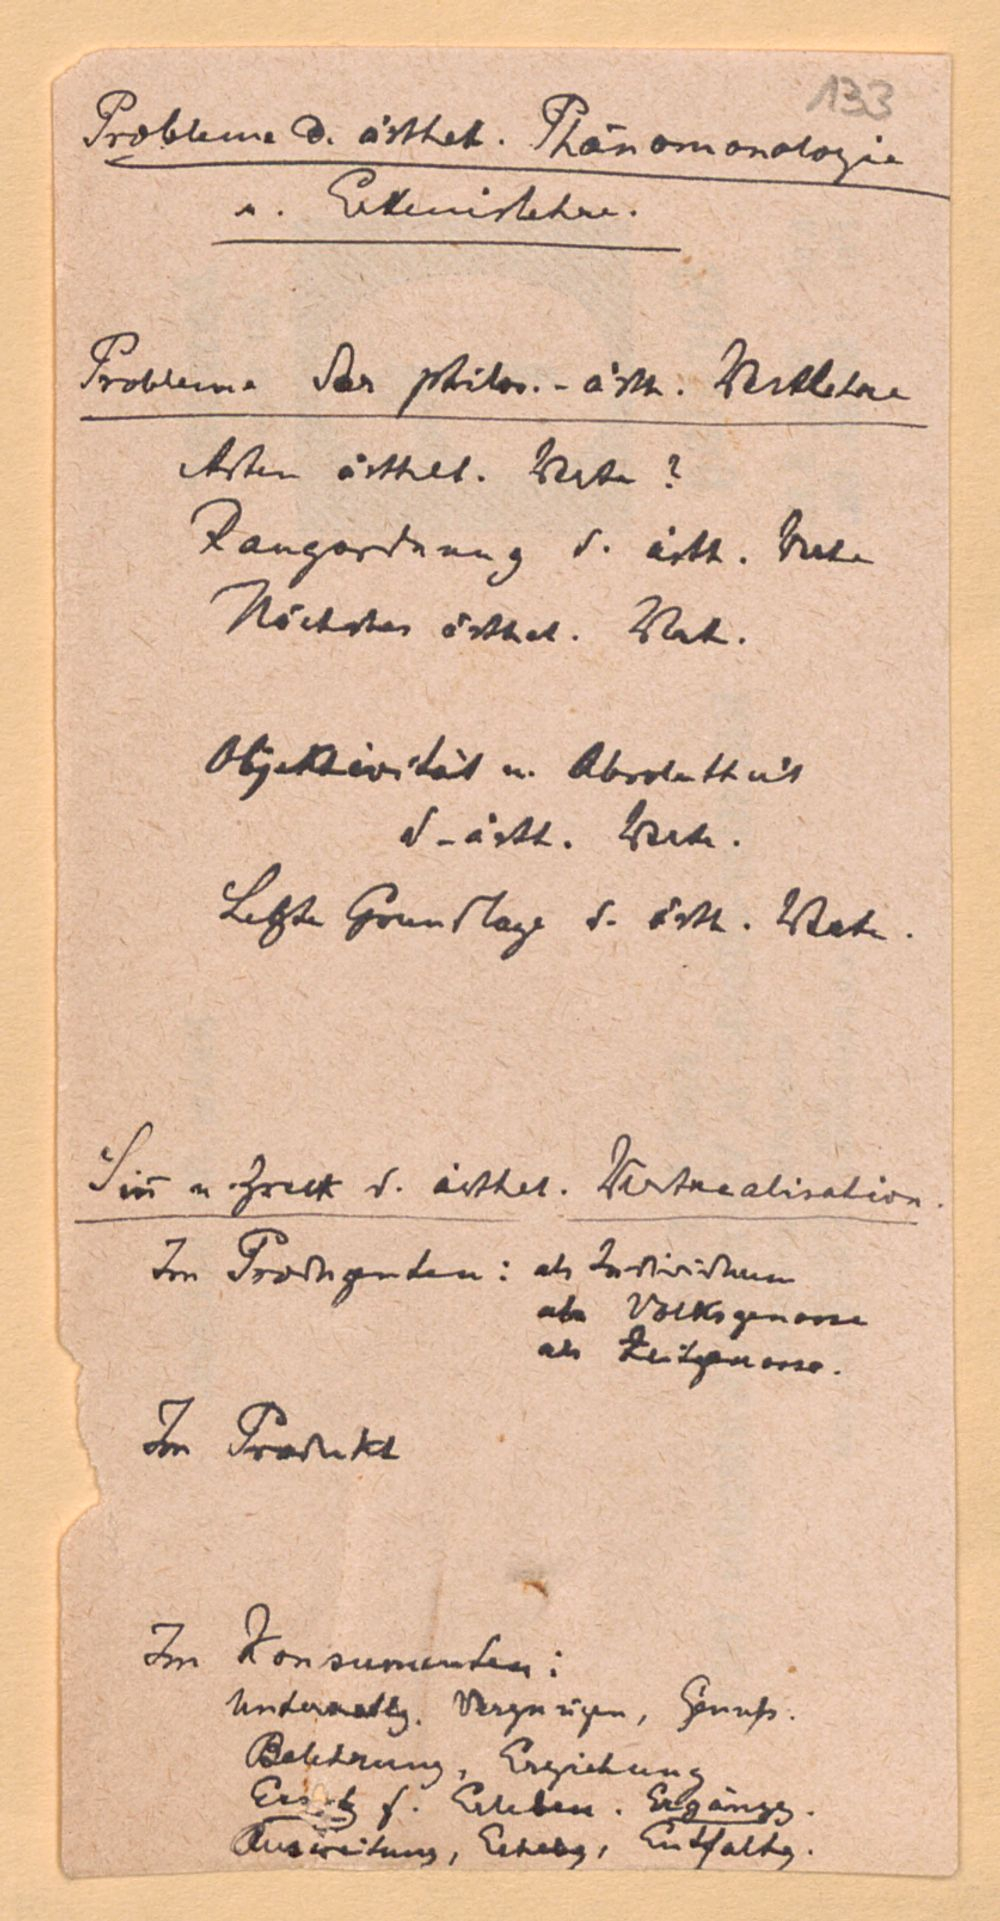 133
Probleme d. ästhet. Phänomonologie
u. Erkennislehre.
Probleme der philos.-ästh. Wertlehre
Arten ästhet. Werte ?
Rangordnung d. ästh. Werte
Höchster ästhet. Wert.
Objektivität u. Absolutheit
d. ästh. Werte.
Letzte Grundlage d. ästh. Werte.
Sinn u. Zweck d. ästhet. Wertrealisation.
Im Produzenten: als Individuum
als Volksgenosse
als Zeitgenosse.
Im Produkt
Im Konsumenten:
Unterhaltg. Vergnügen, Genuß.
Belehrung, Erziehung
Ersatz f. Erleben. Ergänzg.
Ausweitung, Erhebg, Entfaltg.